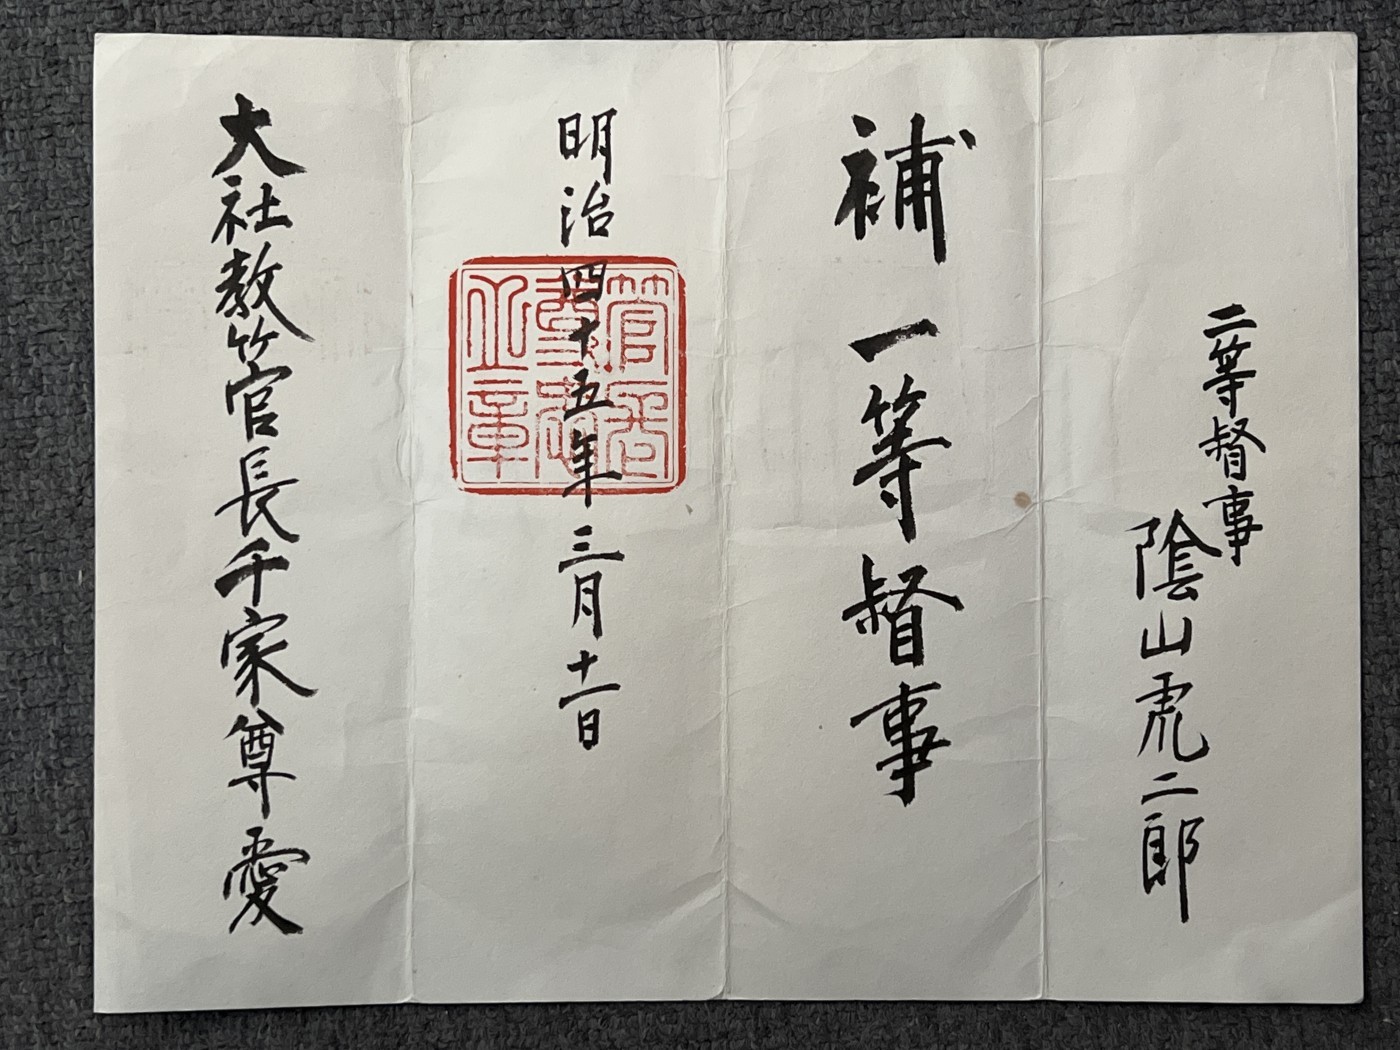 二等督事
陰山虎二郎
補一等督事
明治四十五年三月十一日
大社教管長千家尊愛